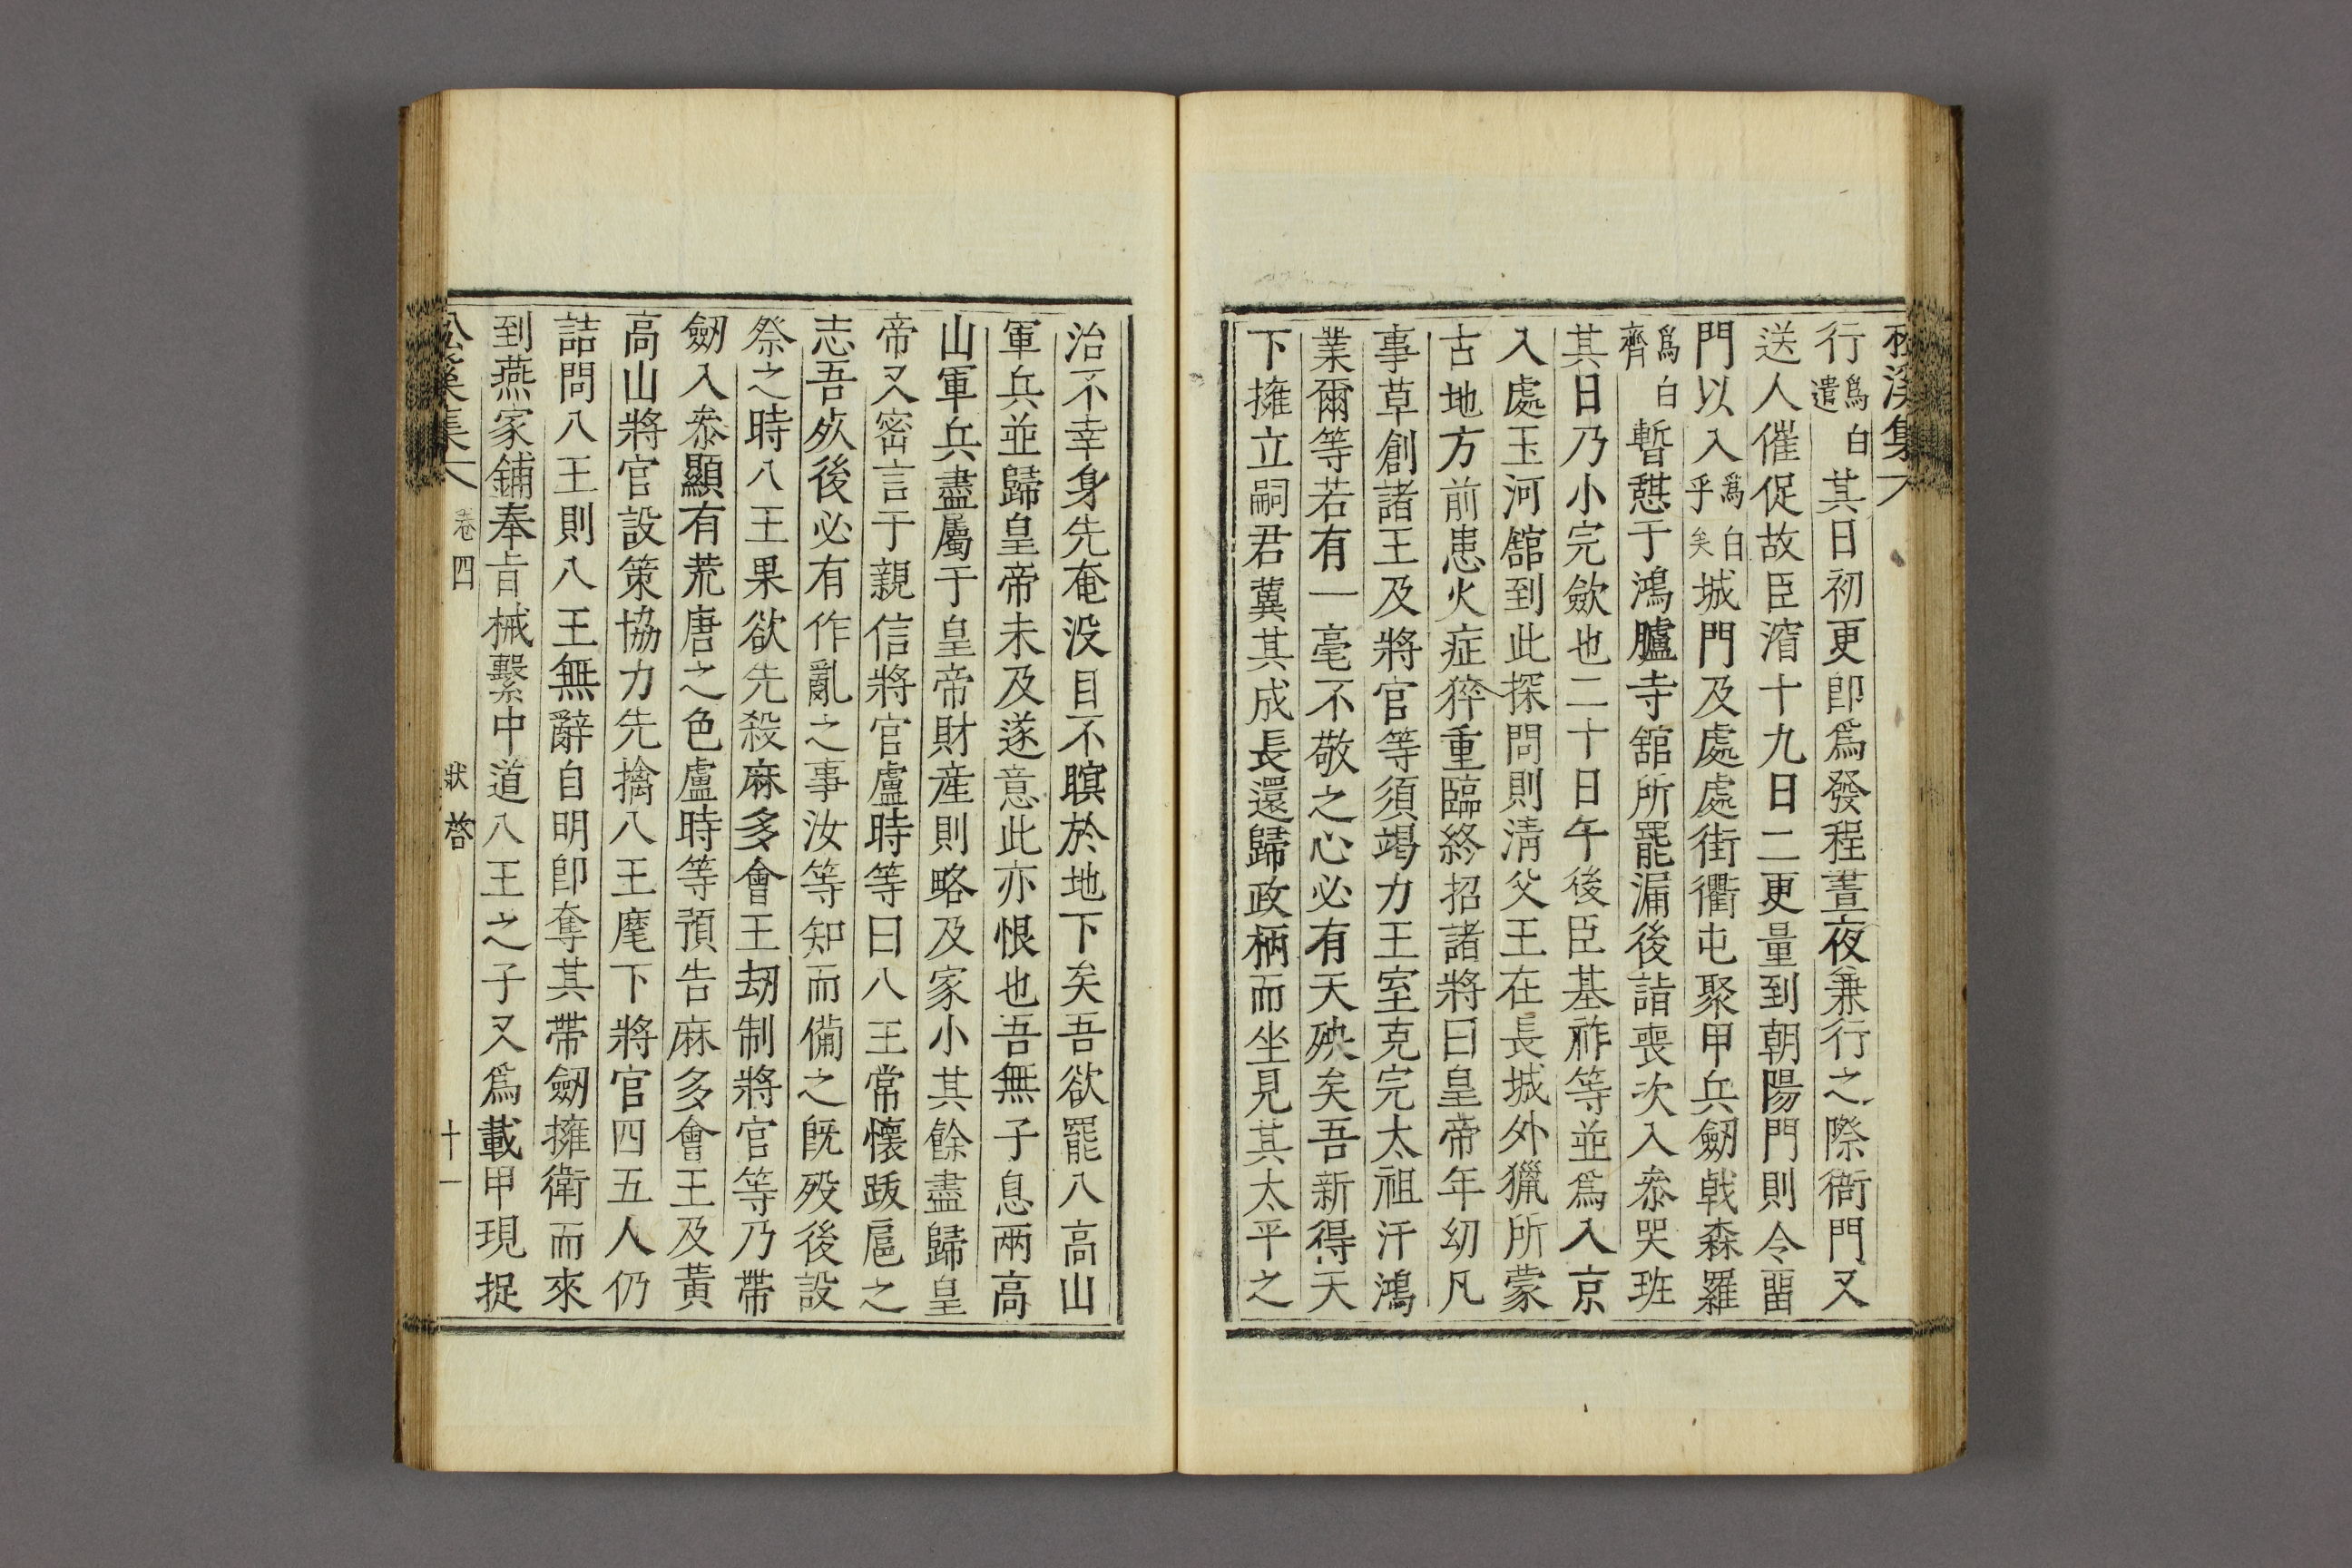 松溪集
行爲白遣其日初更卽爲發程晝夜兼行之際衙門又
送人催促故臣㴃十九日二更量到朝陽門則令畱
門以入爲白乎矣城門及處處街衢屯聚甲兵劒戟森羅
爲白齊暫憇于鴻臚寺舘所罷漏後詣喪次入叅哭班
其日乃小完歛也二十日午後臣基祚等並爲入京
入處玉河舘到此探問則淸父王在長城外獵所蒙
古地方前患火症猝重臨終招諸將曰皇帝年幼凡
事草創諸王及將官等須竭力王室克完太祖汗鴻
業爾等若有一毫不敬之心必有天殃矣吾新得天
下擁立嗣君冀其成長還歸政柄而坐見其太平之
治不幸身先奄没目不瞑於地下矣吾欲罷八高山
軍兵並歸皇帝未及遂意此亦恨也吾無子息兩高
山軍兵盡屬于皇帝財産則略及家小其餘盡歸皇
帝又密言于親信將官盧時等曰八王常懷跋扈之
志吾死後必有作亂之事汝等知而備之旣歿後設
祭之時八王果欲先殺麻多會王劫制將官等乃帶
劒入叅顯有荒唐之色盧時等預告麻多會王及黃
高山將官設策協力先擒八王麾下將官四五人仍
詰問八王則八王無辭自明卽奪其帶劒擁衛而來
到燕家鋪奉旨械繫中道八王之子又爲載甲現捉
松溪集 卷四 狀啓 十一